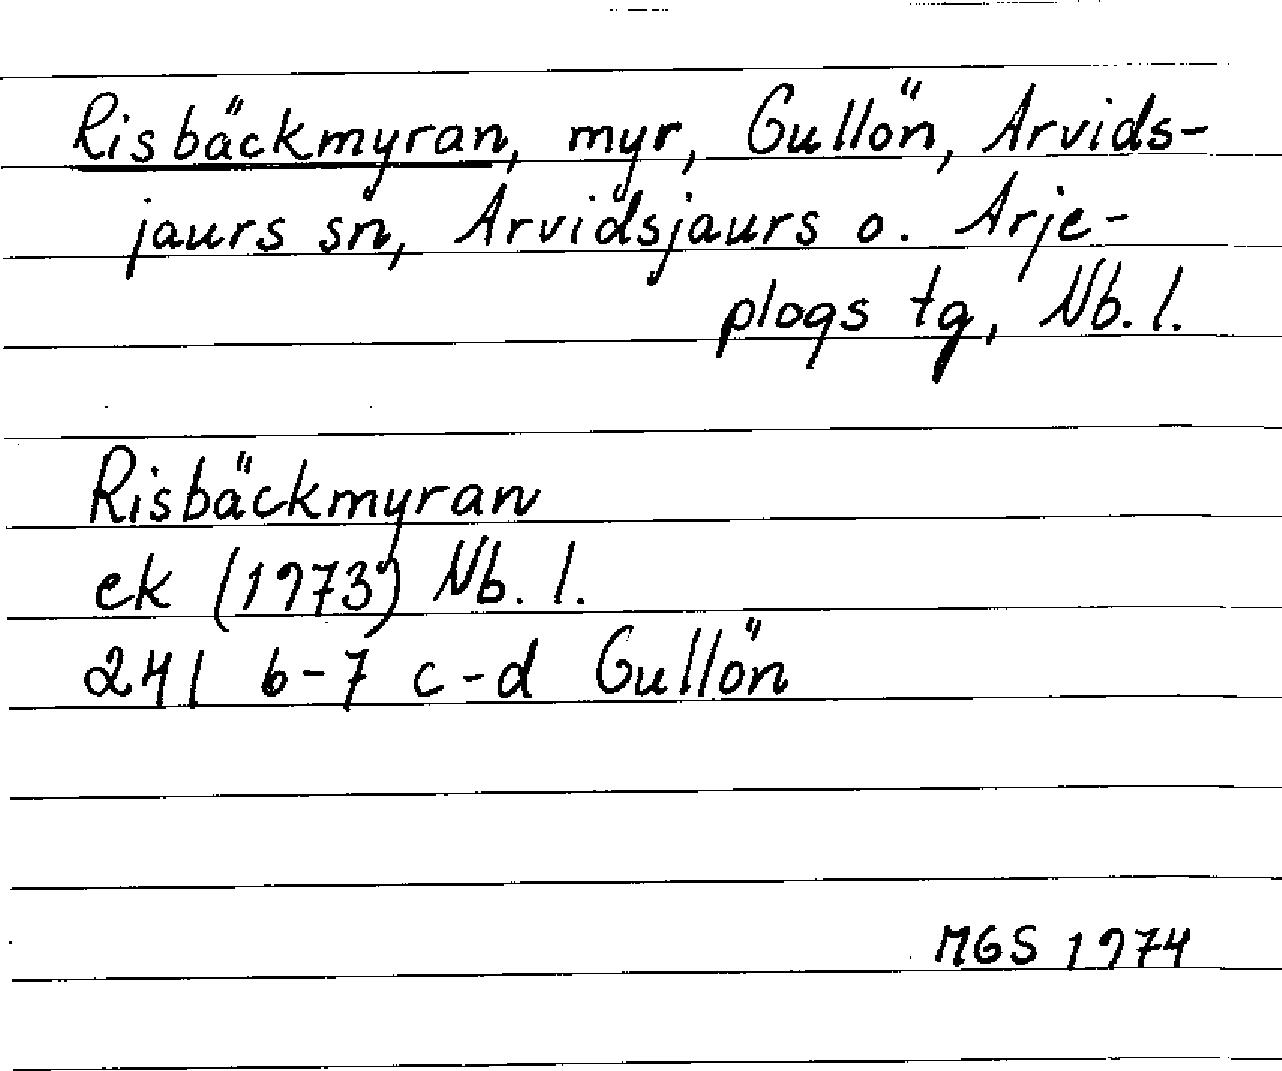 Risbäckmyran, myr, Gullön, Arvids-
jaurs sn, Arvidsjaurs o. Arje-
plogs tg, Nb. l.
Risbäckmyran
ek (1973) Nb. l.
24 I 6-7 c-d Gullön
MGS 1974